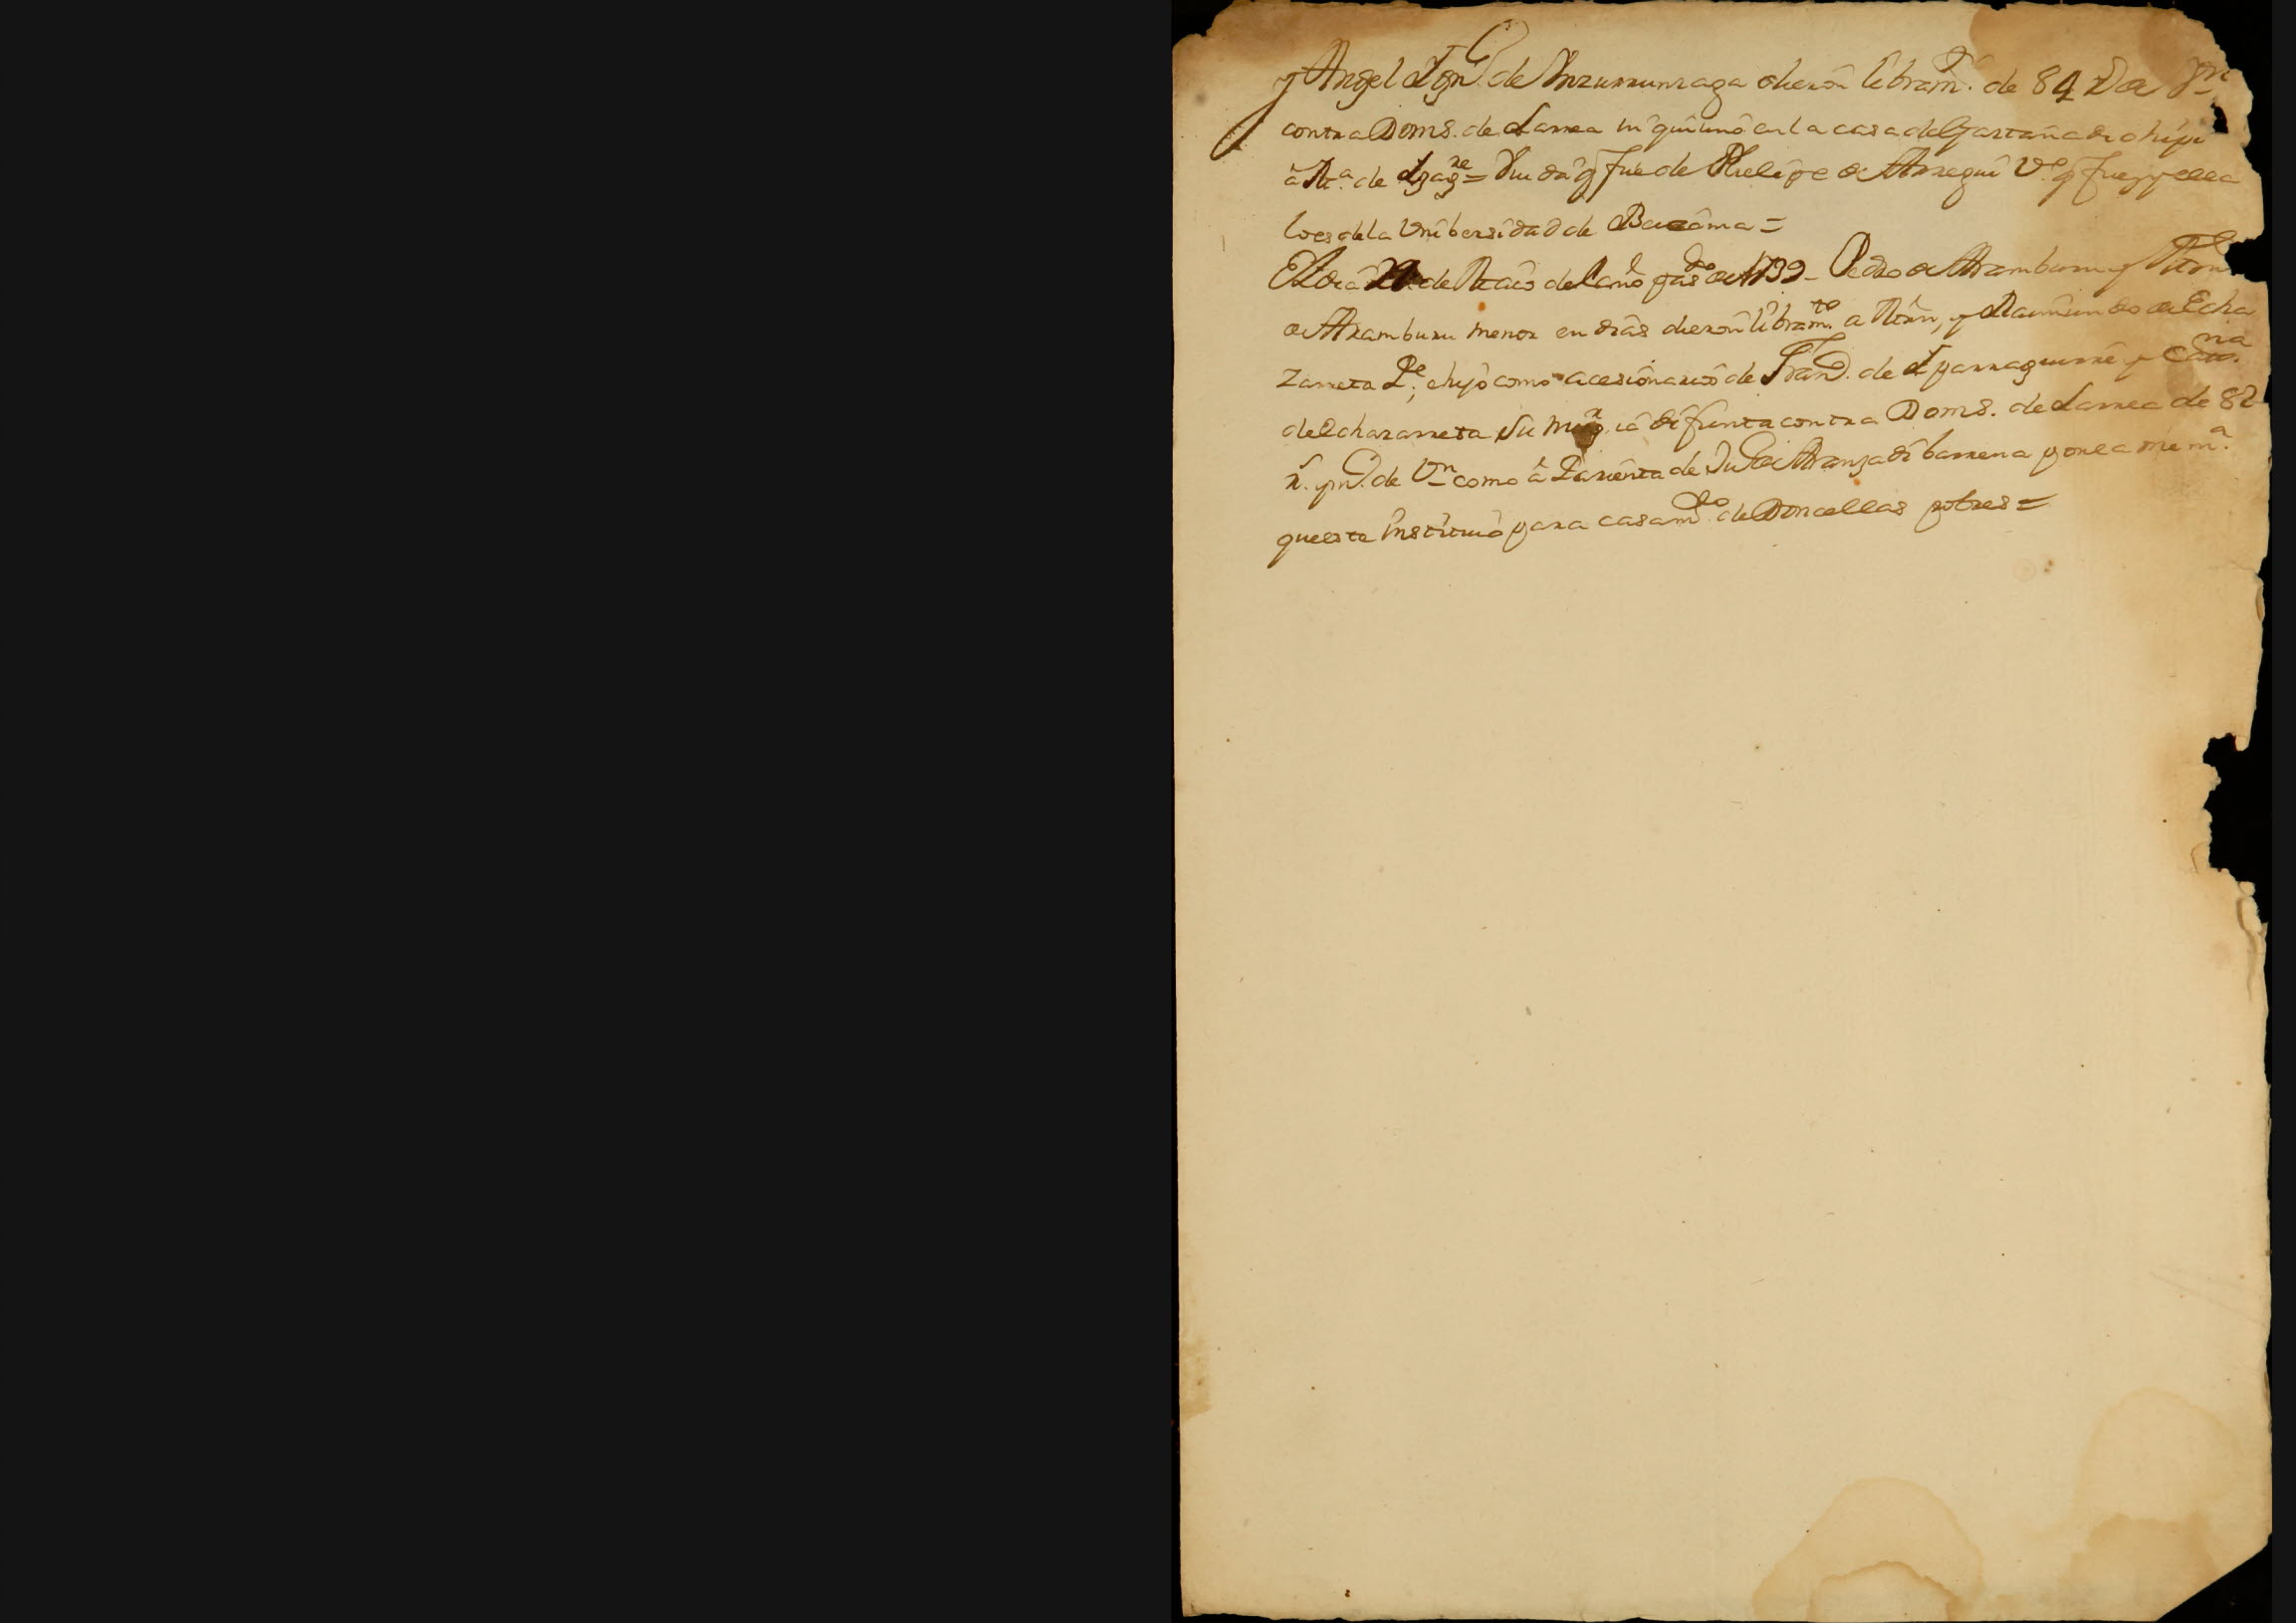 y Angel Ign.º de Unzurrunzaga dieron libram.to de 84 r de Vn
contra Doms. de Larrea inquilino en la casa de Gaztañadi chipi
a M.ª de Yzag.re = Viuda q fue de Phelipe de Arregui V.º q fue y ella
lo es de la Unibersidad de
El dia de Maio del año pas.do de 1739 Pedro de Aramburu y
de Aramburu menor en dias dieron libram.to a Mrn, y Raimundo de Echa
zarreta P.e, e hijo como acesionarios de Fran.co de Yparraguirre y Cat.na
de Echazarreta su difunta contra Doms. de Larrea de 82
r. de Vn como a Parienta de de Aranzadi barrena por la mem.ª
que este instituio para casam.to de Doncellas pobres =